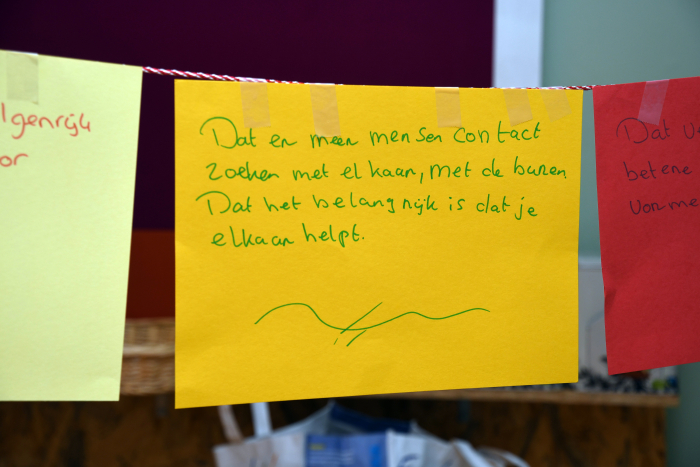 lgenrijk
or
Dat er meer mensen contact
zoeken met elkaar, met de buren.
Dat het belangrijk is dat je
elkaar helpt.
Dat v
betere
vorme